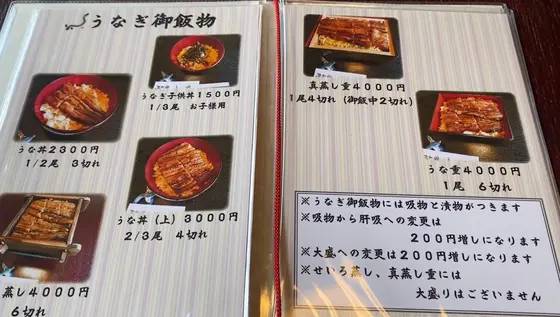 うなぎ御飯物
うなぎ子供丼1500円
1/3尾 お子様用
うな丼2300円
1/2尾 3切れ
うな丼(上)3000円
2/3尾 4切れ
蒸し4000円
6切れ
真蒸し重4000円
1尾4切れ(御飯中2切れ)
うな重4000円
1尾 6切れ
※うなぎ御飯物には吸物と漬物がつきます
※吸物から肝吸への変更は
200円増しになります
※大盛への変更は200円増しになります
※せいろ蒸し、真蒸し重には
大盛りはございません